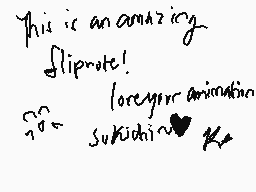 This is an amazing
flipnote!
love your animation
sukichi~♥